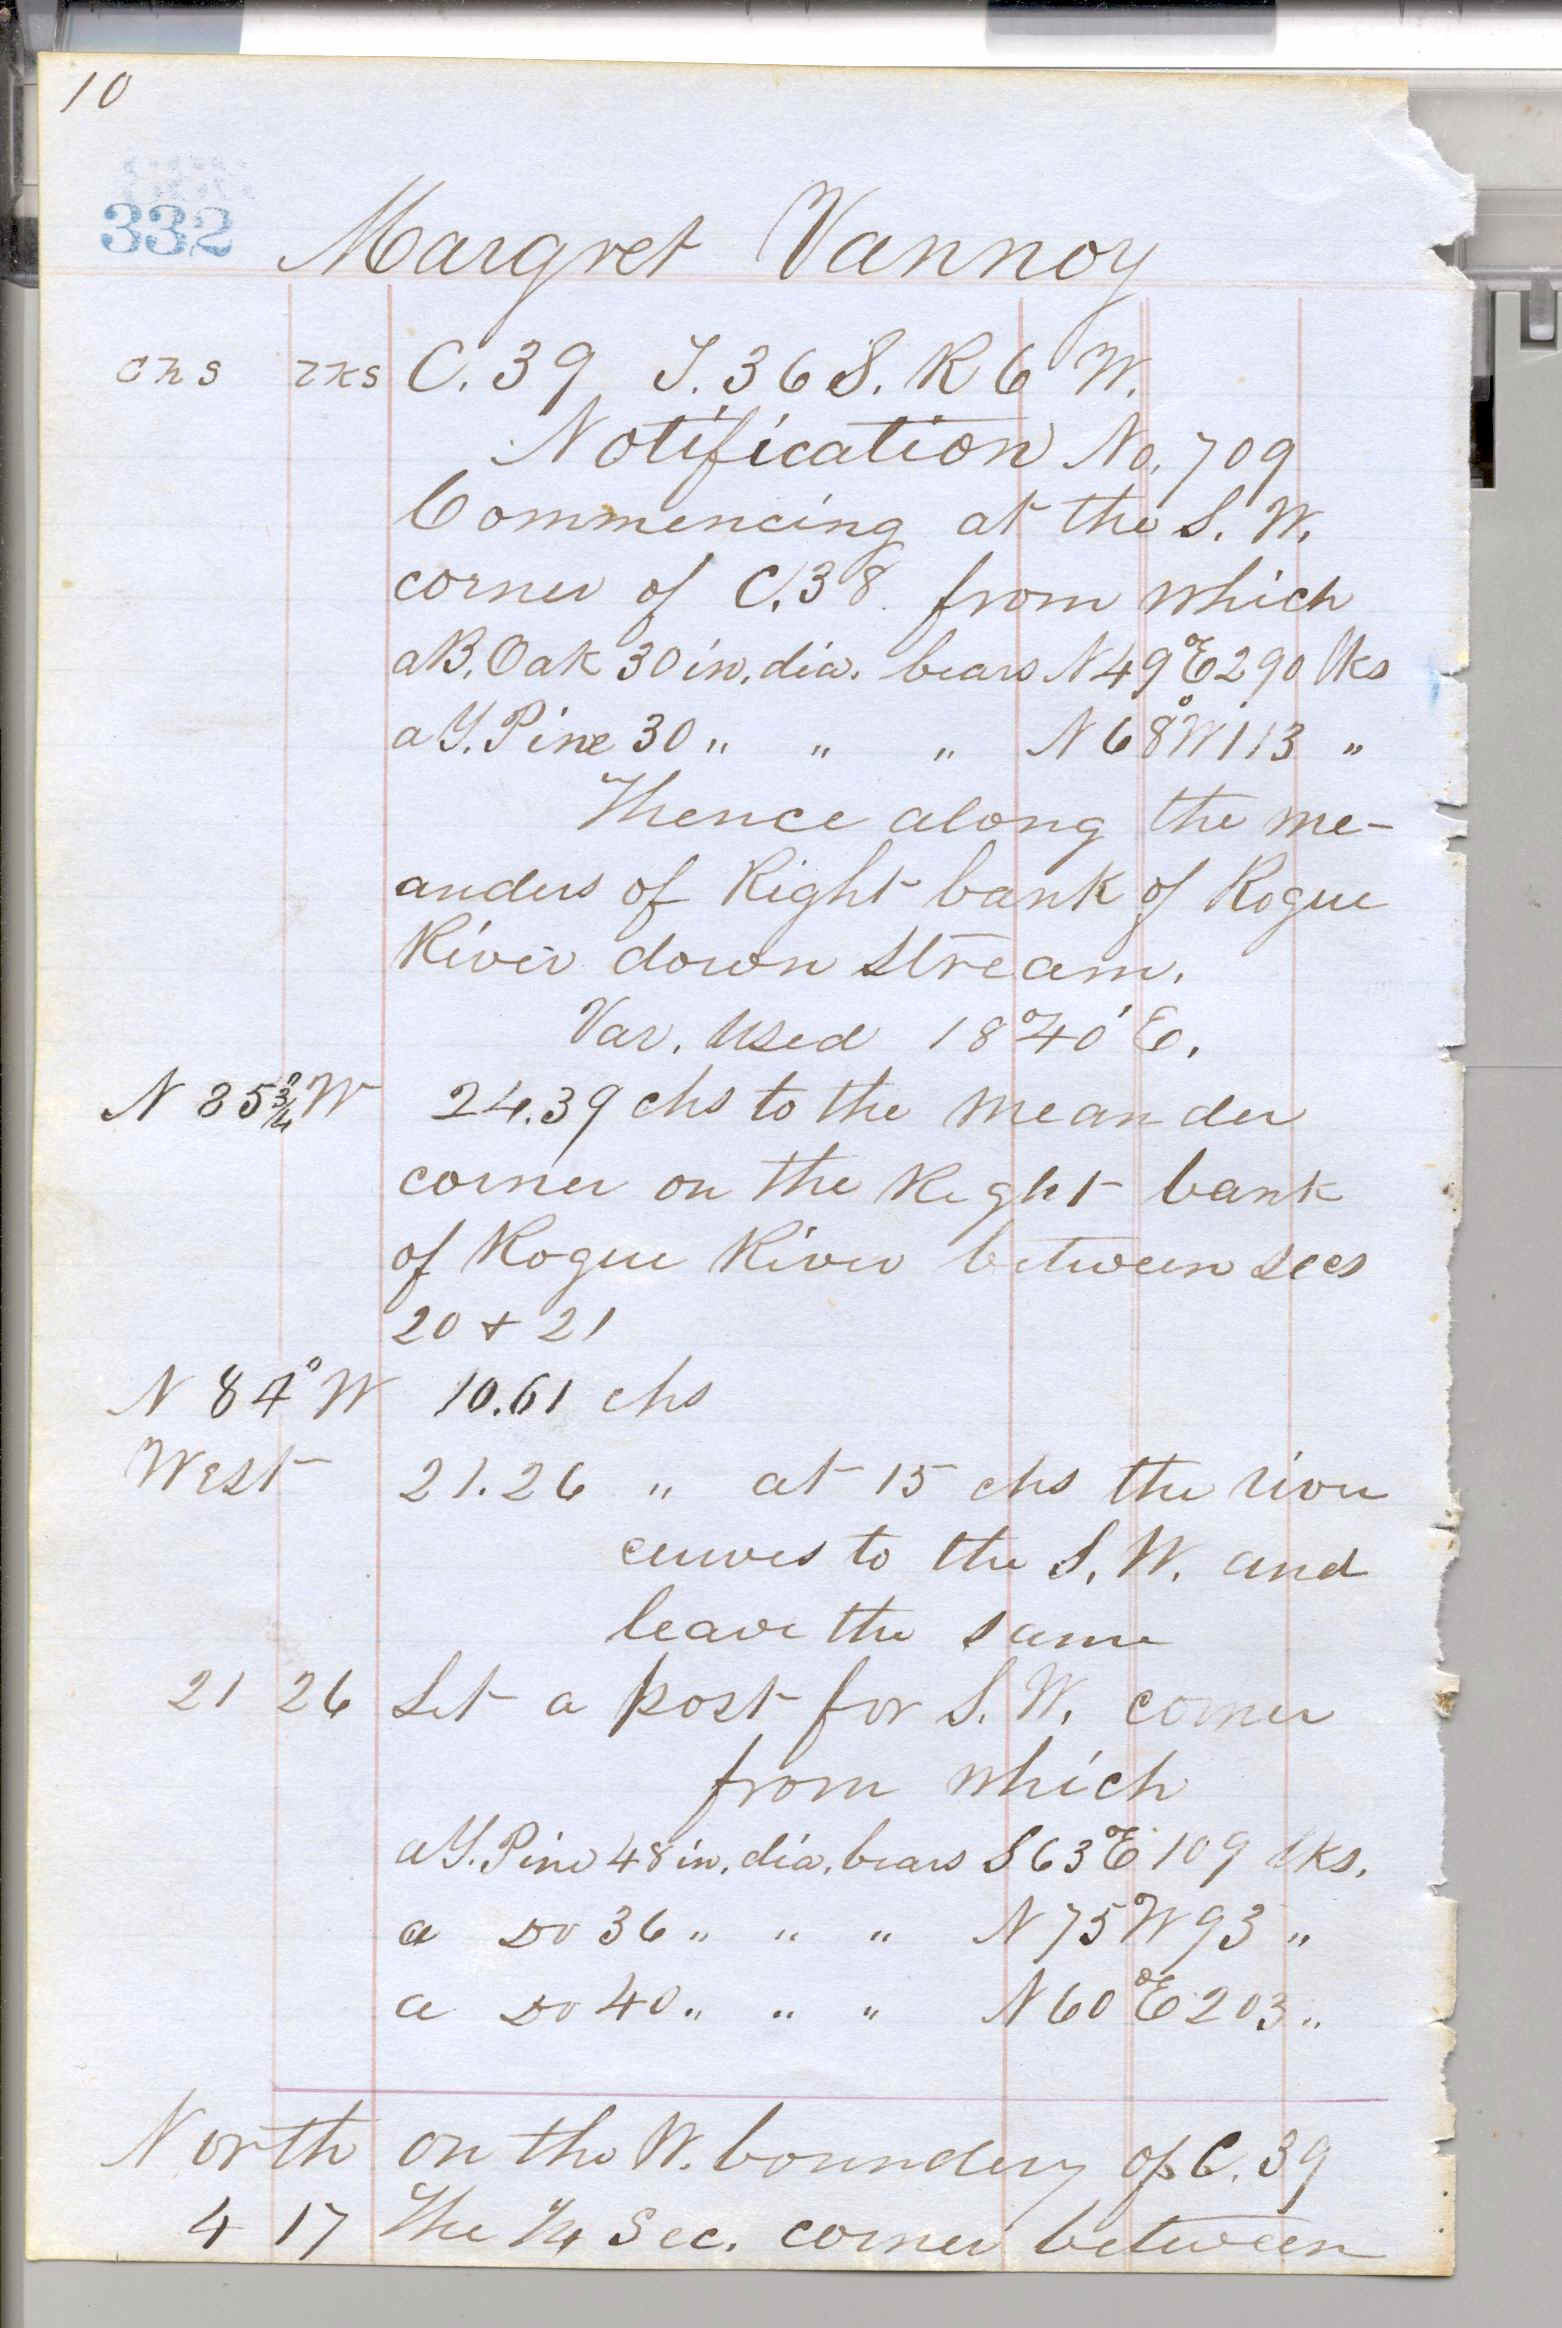 10
332
Margret Vannoy
chs lks C. 39 T. 36 S. R 6 W.
Notification No. 709
Commencing at the S. W.
corner of C. 38 from which
a B. Oak 30 in. dia. bears N 49° E 290 lks
a Y. Pine 30 " " " N 68° W 113 "
Thence along the me-
anders of Right bank of Rogue
River down stream.
Var. used 18° 40' E.
N 85 3/4° W 24.39 chs to the meander
corner on the Right bank
of Rogue River between secs
20 & 21
N 84° W 10.61 chs
West 21.26 " at 15 chs the river
curves to the S. W. and
leave the same
21 26 Set a post for S. W. corner
from which
a Y. Pine 48 in. dia. bears S 63° E 109 lks.
a Do 36 " " " N 75° W 93 "
a Do 40 " " " N 60° E 203 "
North on the W. boundery of C. 39
4 17 The 1/4 Sec. corner between